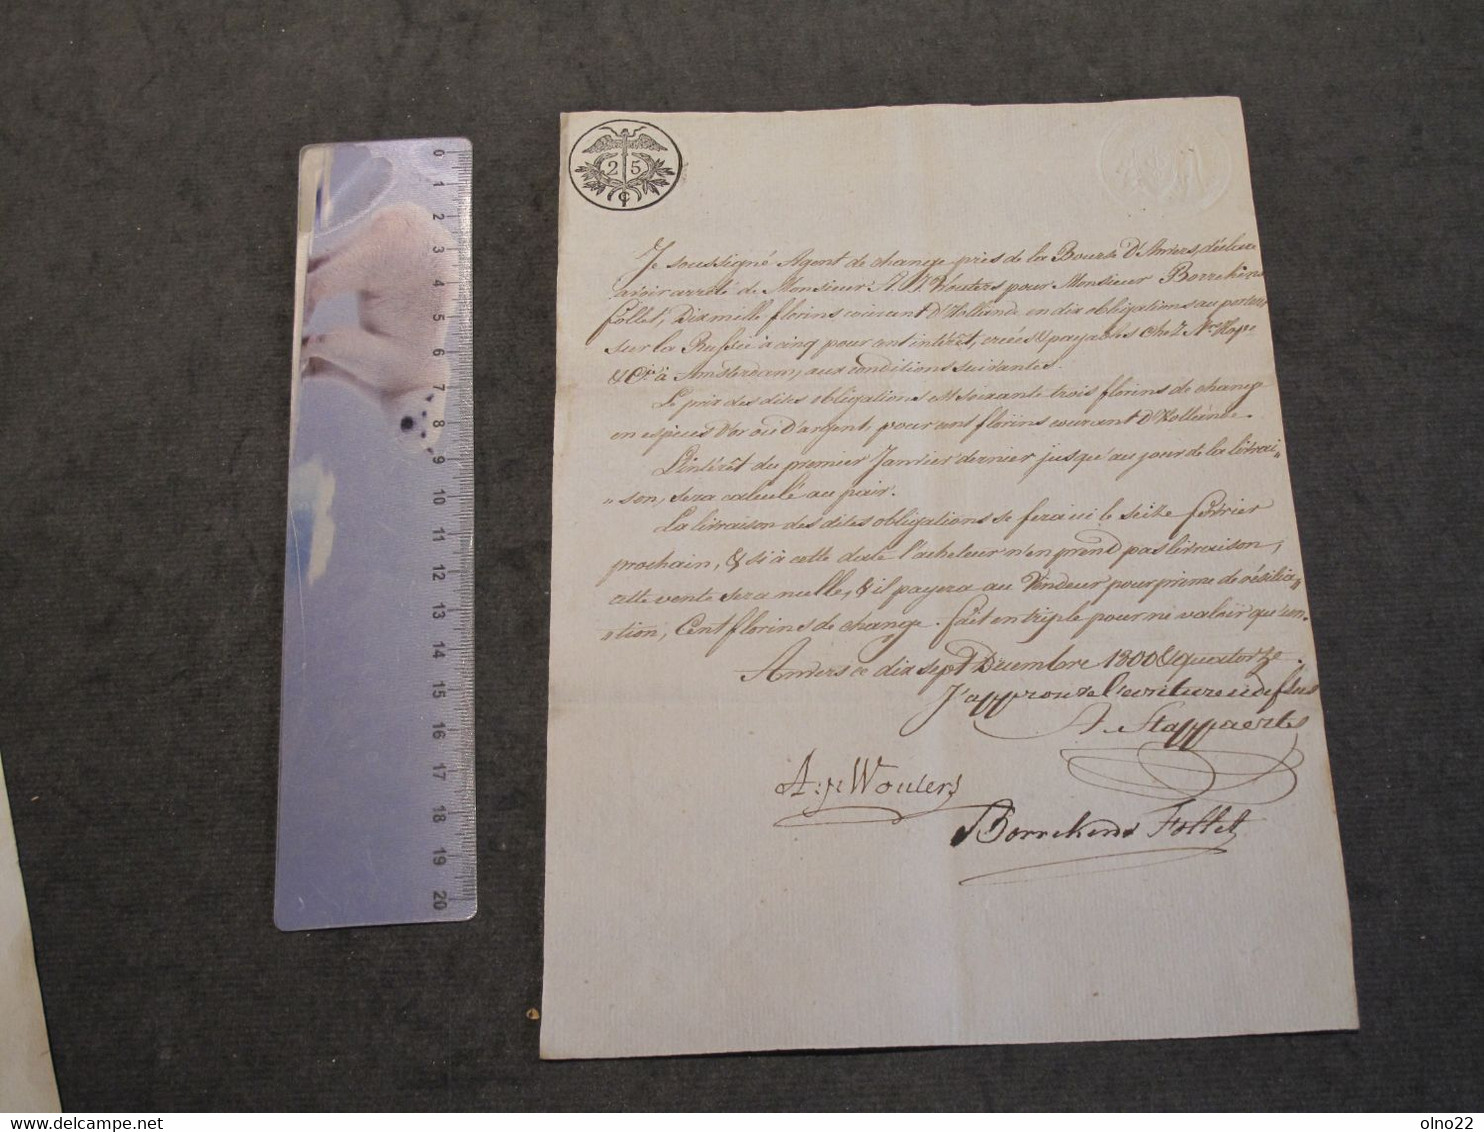 0
1
2
3
4
5
6
7
8
9
10
11
12
13
14
15
16
17
18
19
20
25
C
Je soussigné Agent de change près de la Bourse d'Anvers, déclare
avoir arrêté de Monsieur A. J. Wouters pour Monsieur Borrekens
Follet, Dix mille florins courant d'Hollande en dix obligations au porteur
sur la Russie à cinq pour cent intérêt, créées & payables chez Mrs Hope
& Cie à Amsterdam, aux conditions suivantes.
Le prix des dites obligations est soixante trois florins de change
en espèces d'or ou d'argent, pour cent florins courant d'Hollande.
L'intérêt du premier Janvier dernier jusqu'au jour de la livrai„
„son, sera calculé au pair.
La livraison des dites obligations se fera ici le seize février
prochain, & si à cette date l'acheteur n'en prend pas livraison,
cette vente sera nulle, & il payera au Vendeur pour prime de résilia„
„tion, Cent florins de change. fait en triple pour ne valoir qu'un.
Anvers ce dix sept Décembre 1800 & quatorze.
J'approuve l'écriture ci dessus
A Stappaerts
A: J: Wouters
Borrekens Follet
delcampe.net
olno22